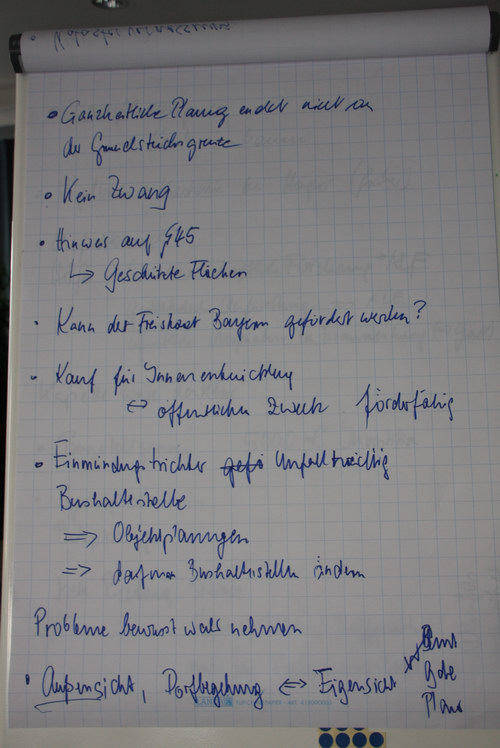 • Ganzheitliche Planung endet nicht an
der Grundstücksgrenze
• Kein Zwang
• Hinweis auf §45
↳ Geschützte Flächen
• Kann der Freistaat Bayern gefördert werden?
• Kauf für Innenentwicklung
↔ öffentlichen Zweck förderfähig
• Einmündungstrichter Unfallträchtig
Bushaltestelle
⇒ Objektplanungen
⇒ Bushaltestelle ändern
Probleme bewusst wahrnehmen
• Außensicht, Dorfbegehung ↔ Eigensicht
Gote
Plan